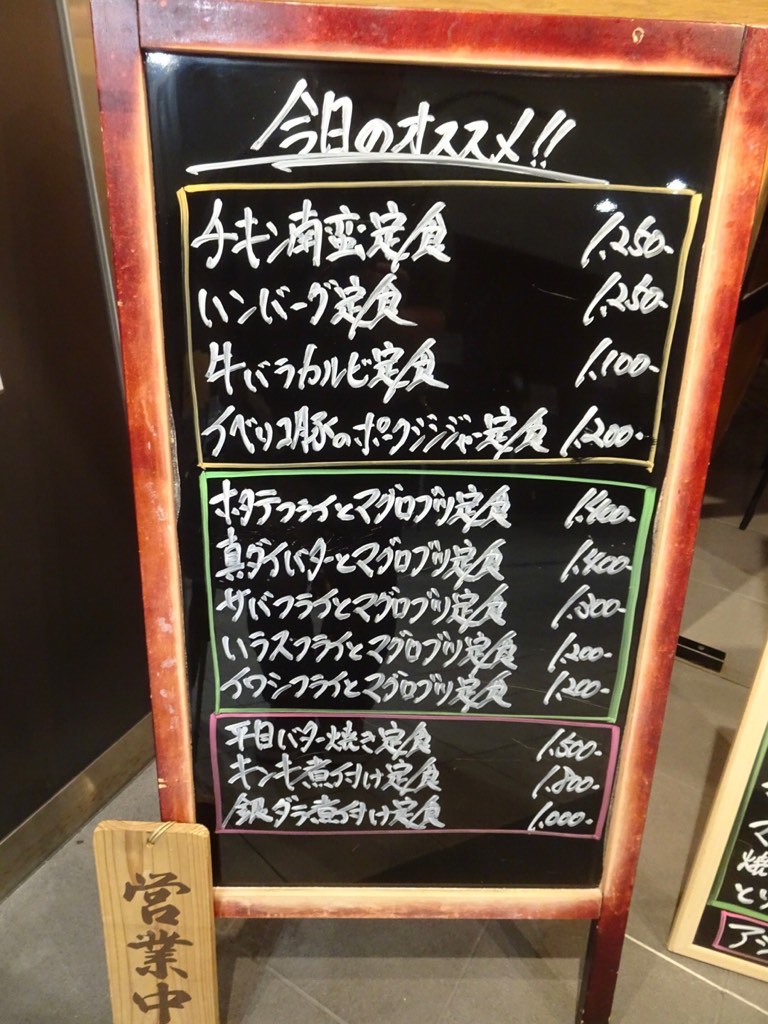 今日のオススメ!!
チキン南蛮定食 1,250-
ハンバーグ定食 1,250-
牛バラカルビ定食 1,100-
イベリコ豚のポークジンジャー定食 1,200-
ホタテフライとマグロブツ定食 1,400-
真ダイバターとマグロブツ定食 1,400-
サバフライとマグロブツ定食 1,300-
シラスフライとマグロブツ定食 1,200-
イワシフライとマグロブツ定食 1,200-
平目バター焼き定食 1,500-
キンキ煮付け定食 1,800-
銀ダラ煮付け定食 1,000-
営業中
マ
焼
とり
アジ